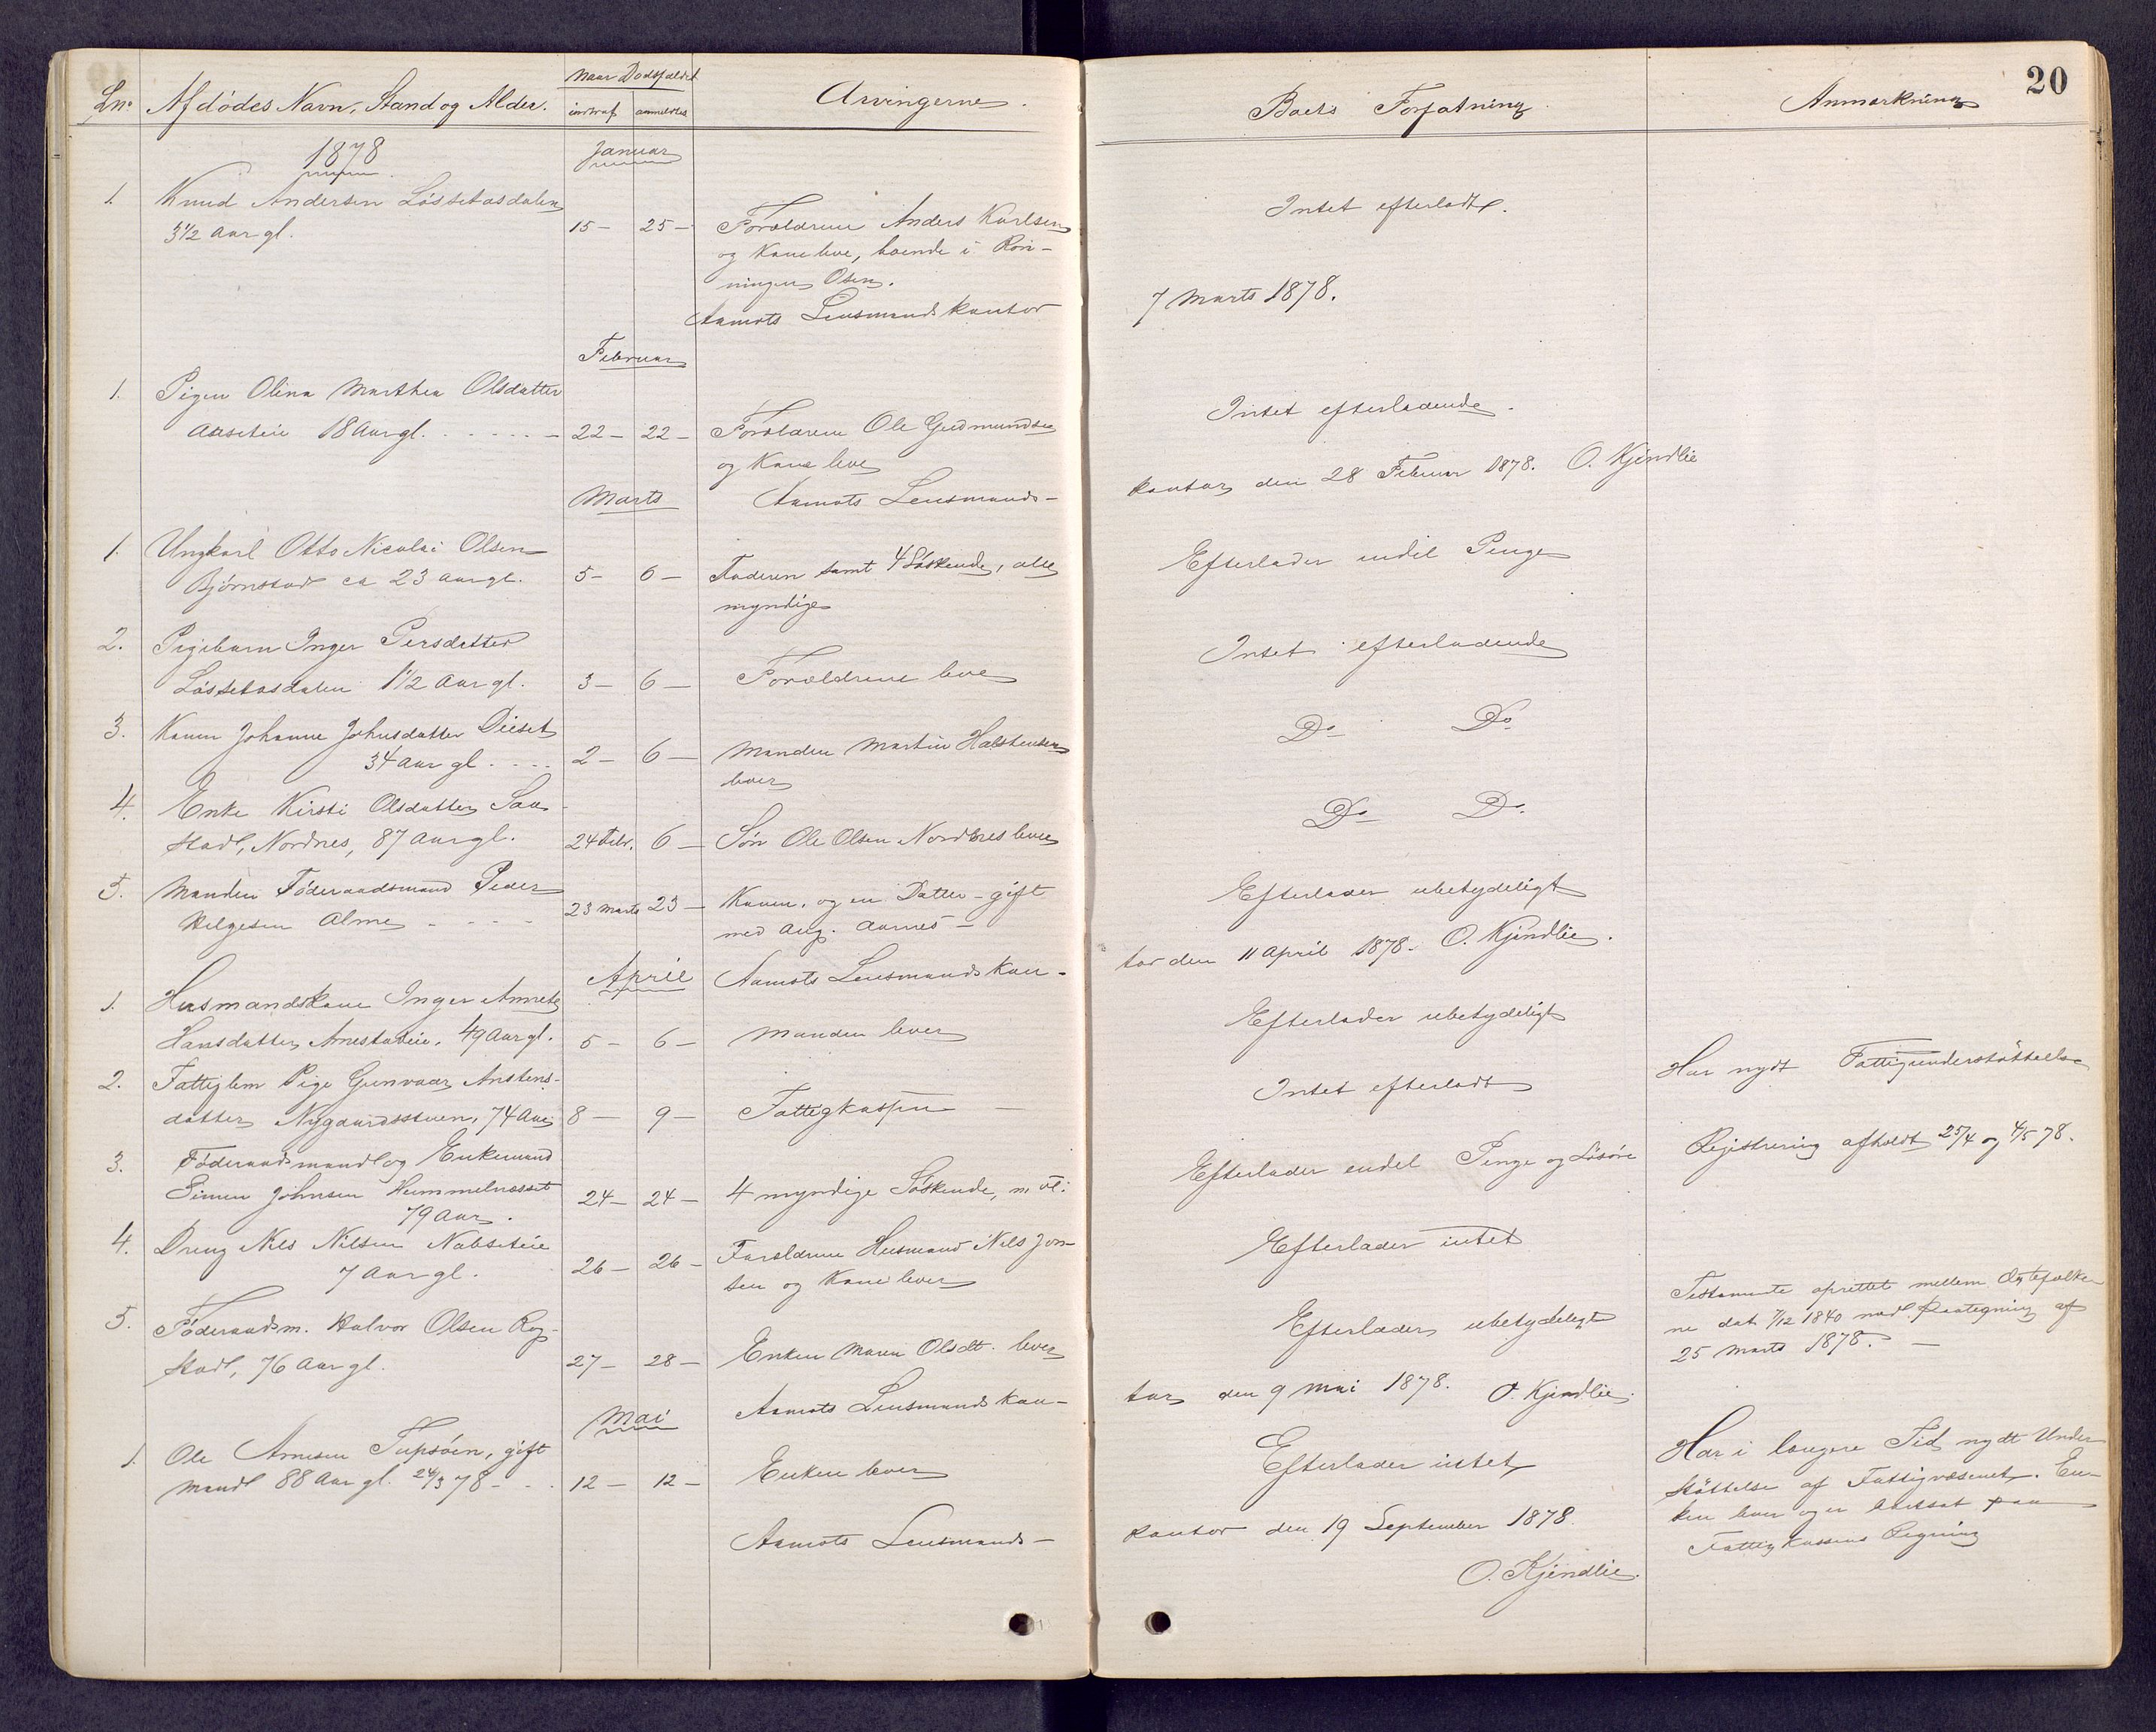 20
Lnº Afdødes Navn, Stand og Alder. Naar Dødsfaldet indtraf anmeldtes Arvingerne. Boets Forfatning Anmærkning
1878 Januar
1. Knud Andersen Løssetosdalen
3 1/2 Aar gl. 15 – 25 – Forældrene Anders Karlsen Intet efterladt.
og Kone leve, boende i Røn-
ningen Osen.
Aamots Lensmandskontor 7 Marts 1878.
Februar
1. Pigen Olina Marthea Olsdatter
Aaseteie 18 Aar gl. 22 – 22 – Forældrene Ole Gudmundsen Intet efterladende.
og Kone leve
Aamots Lensmands- kontor den 28 Februar 1878. O. Kjendlie
Marts
1. Ungkarl Otto Nicolai Olsen
Bjørnstad ca 23 aar gl. 5 – 6 – Faderen samt 4 Søskende, alle Efterlader endel Penge
myndige
2. Pigebarn Inger Persdatter
Løssetosdalen 1 1/2 Aar gl. 3 – 6 – Forældrene leve Intet efterladende
3. Konen Johanne Johnsdatter Dieset
34 Aar gl. 2 – 6 – Manden Martin Halstensen Do Do
lever
4. Enke Kirsti Olsdatter Sau-
stad, Nordnes, 87 Aar gl. 24 Febr. 6 – Søn Ole Olsen Nordnes lever Do Do
5. Manden Føderaadsmand Peder
Helgesen Alme 23 Marts 23 – Konen, og en Datter – gift Efterlader ubetydeligt
med Aug. Aarnes –
Aamots Lensmandskon- tor den 11 April 1878. O. Kjendlie.
April
1. Husmandskone Inger Annete
Hansdatter Arnestadeie, 49 Aar gl. 5 – 6 – Manden lever Efterlader ubetydeligt
2. Fattiglem Pige Gunvaar Anstens-
datter Nygaardsstuen, 74 Aar 8 – 9 – Fattigkassen – Intet efterladt Har nydt Fattigunderstøttelse
3. Føderaadsmand og Enkemand
Simen Johnsen Hummelnæsset 24 – 24 – 4 myndige Søskende, m. fl. Efterlader endel Penge og Løsøre Registrering afholdt 25/4 og 4/5 78.
79 Aar.
4. Dreng Nils Nilsen Nabseteie
7 Aar gl. 26 – 26 – Forældrene Husmand Nils Jon- Efterlader intet
sen og Kone lever
5. Føderaadsm. Halvor Olsen Rog-
stad, 76 Aar gl. 27 – 28 – Enken Maren Olsdt. lever Efterlader ubetydeligt Testamente oprettet mellem Ægtefolke-
ne dat 7/12 1840 med Paategning af
25 Marts 1878. –
Aamots Lensmandskon- tor den 9 Mai 1878. O. Kjendlie.
Mai
1. Ole Arnesen Tupsøen, gift
Mand 88 Aar gl. 24/3 78 – 12 – 12 – Enken lever Efterlader intet Har i længere Tid nydt Under-
støttelse af Fattigvæsenet. En-
ken lever og er bortsat paa
Fattigkassens Regning
Aamots Lensmands- kontor den 19 September 1878.
O. Kjendlie.